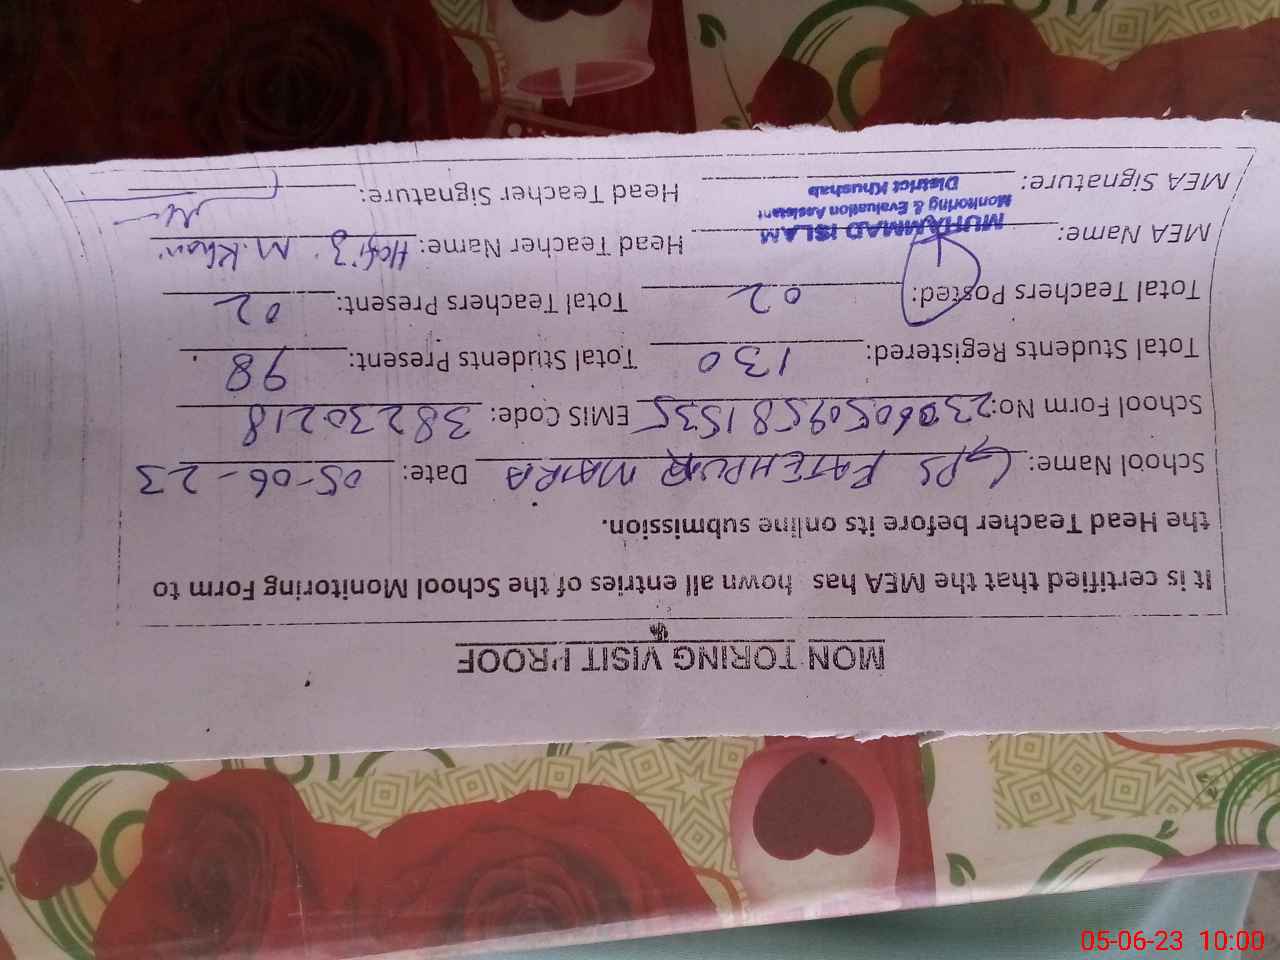 MON TORING VISIT PROOF
It is certified that the MEA has hown all entries of the School Monitoring Form to
the Head Teacher before its online submission.
School Name: GPS FATEHPUR MAIRA Date: 05-06-23
School Form No: 23060509581535 EMIS Code: 38230218
Total Students Registered: 130 Total Students Present: 98
Total Teachers Posted: 02 Total Teachers Present: 02
MEA Name: MUHAMMAD ISLAM Head Teacher Name: Hafiz M. Khan
Monitoring & Evaluation Assistant
MEA Signature: District Khushab Head Teacher Signature:
05-06-23 10:00